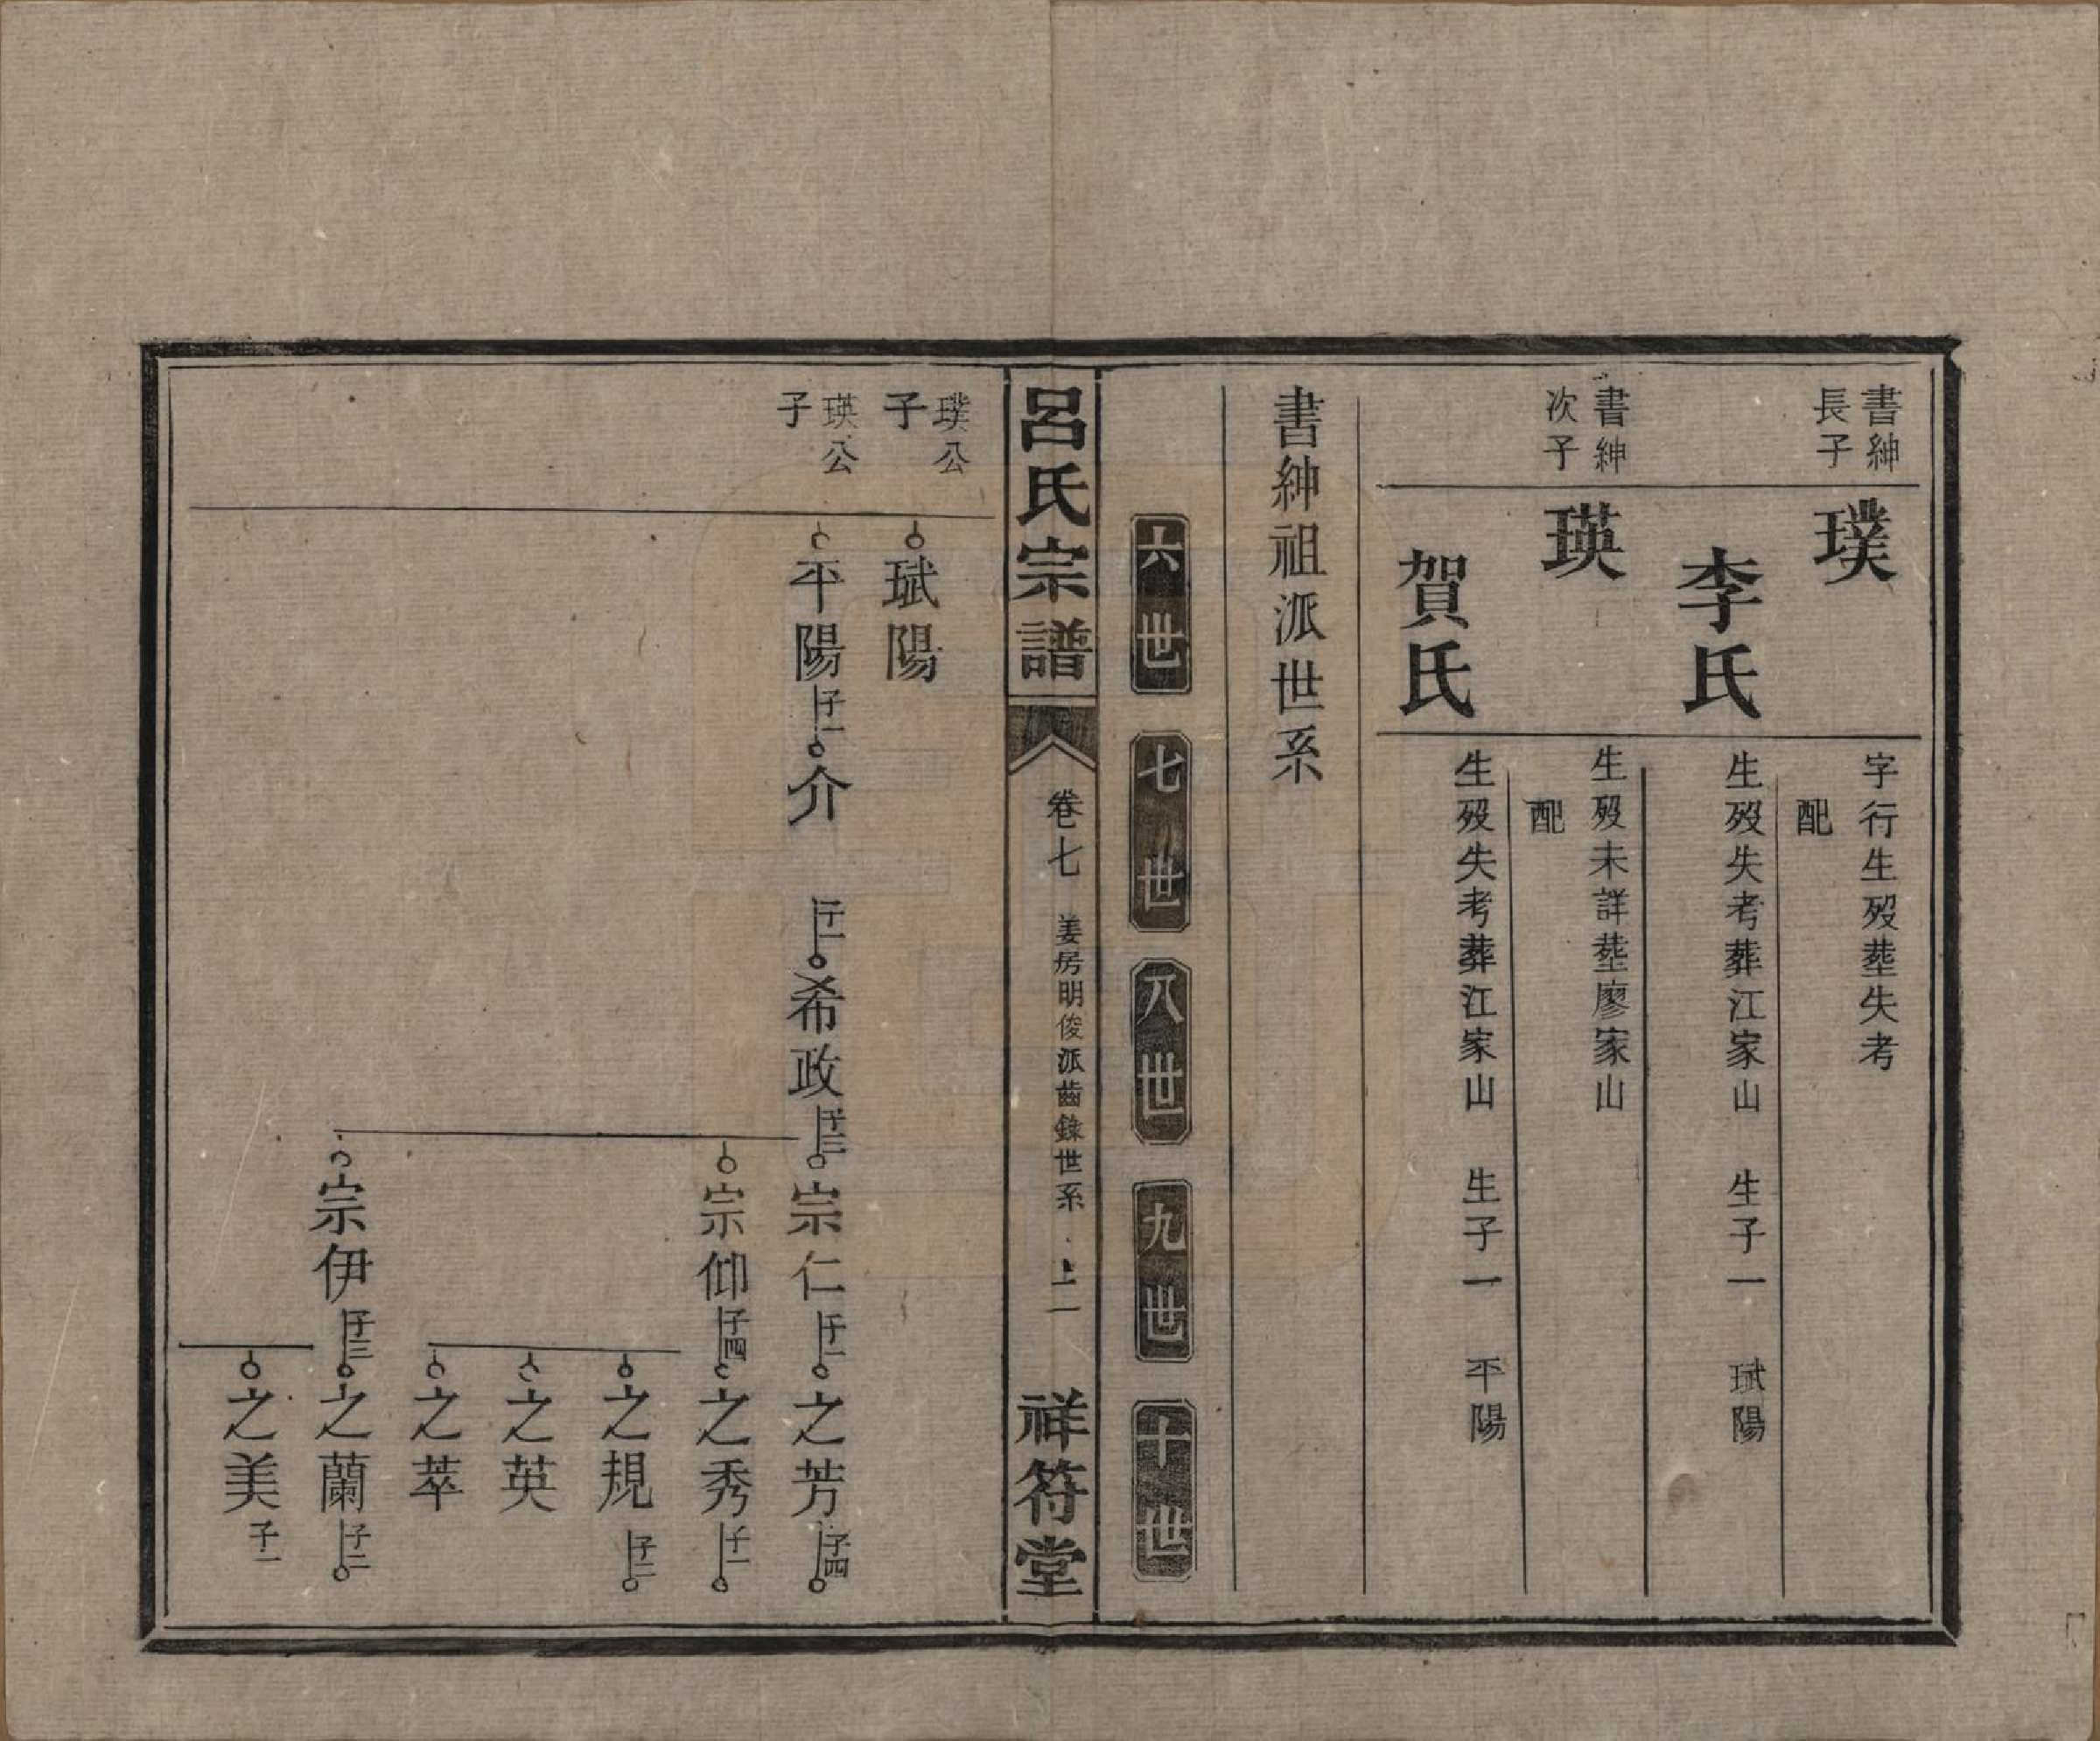 書紳長子
璞
字行生歿塟失考
配
李氏
生歿失考葬江家山 生子一 珷陽
書紳次子
瑛
生歿未詳塟廖家山
配
賀氏
生歿失考葬江家山 生子一 平陽
書紳祖派世系
六世 七世 八世 九世 十世
呂氏宗譜 卷七 姜房明俊派齒錄世系 祥符堂
璞公子
珷陽
瑛公子
平陽 子一 介 子一 希政 子三 宗仁 子一 之芳 子四
宗仰 子四 之秀 子一
之規 子二
之英
之萃
宗伊 子三 之蘭 子二
之美 子一